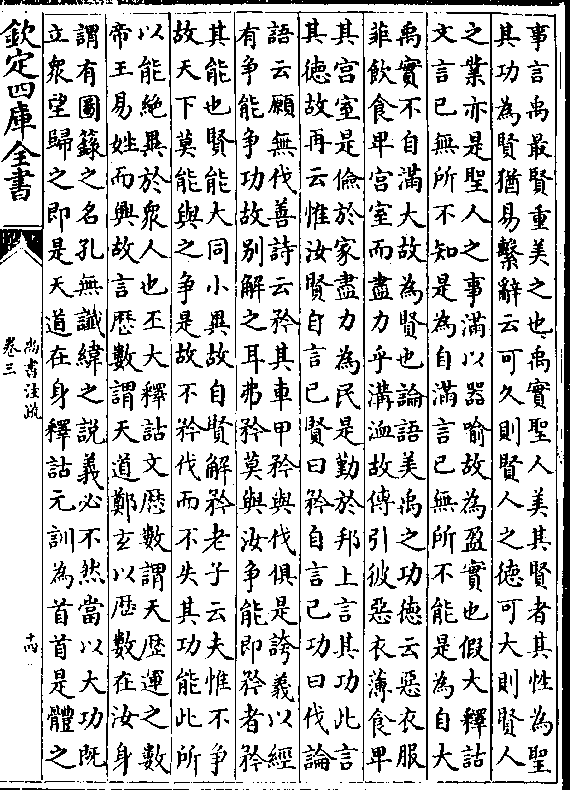 事言禹最賢重美之也禹實聖人美其賢者其性為聖
其功為賢猶易繫辭云可久則賢人之德可大則賢人
之業亦是聖人之事滿以器喻故為盈實也假大釋詁
文言已無所不知是為自滿言已無所不能是為自大
禹實不自滿大故為賢也論語美禹之功德云惡衣服
菲飲食卑宮室而盡力乎溝洫故傳引彼惡衣薄食卑
其宮室是儉於家盡力為民是勤於邦上言其功此言
其德故再云惟汝賢自言已賢曰矜自言己功曰伐論
語云願無伐善詩云矜其車甲矜與伐俱是誇義以經
有爭能爭功故別解之耳弗矜莫與汝爭能即矜者矜
其能也賢能大同小異故自賢解矜老子云夫惟不爭
故天下莫能與之爭是故不矜伐而不失其功能此所
以能絶異於衆人也丕大釋詁文歴數謂天歴運之數
帝王易姓而興故言歴數謂天道鄭玄以歴數在汝身
謂有圖籙之名孔無讖緯之說義必不然當以大功既
立衆望歸之即是天道在身釋詁元訓為首首是體之
欽定四庫全書
尚書注疏
卷三
十四